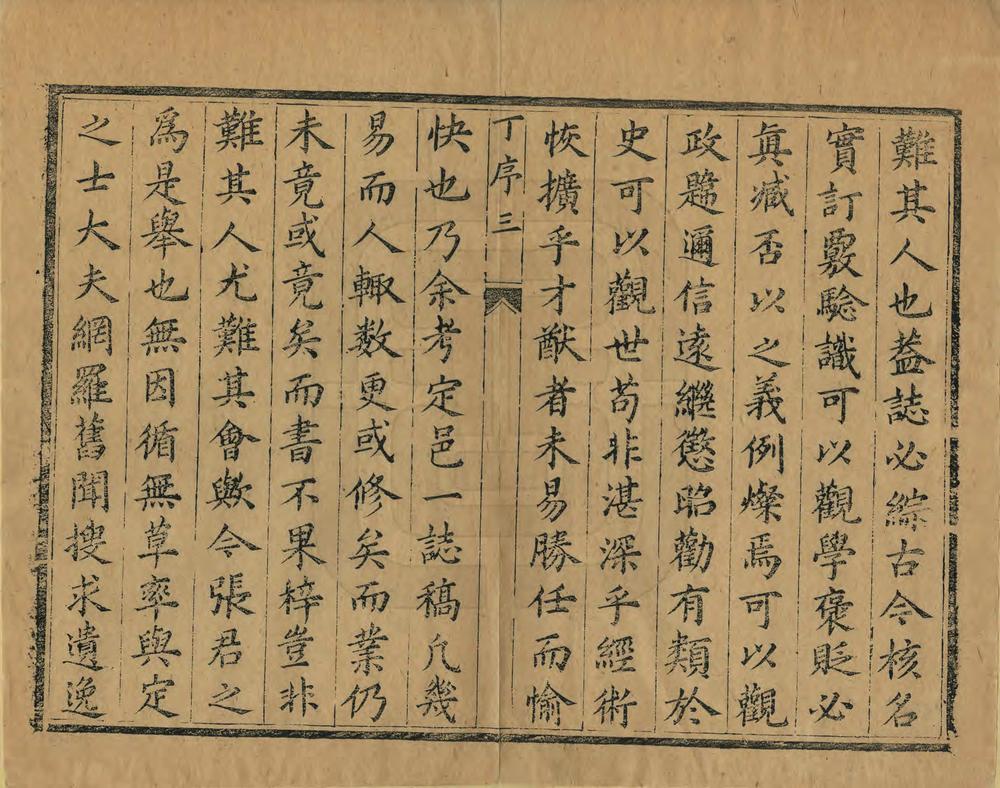 難其人也葢誌必綜古今核名
實訂覈驗識可以觀學褒貶必
眞臧否以之義例燦焉可以觀
政題邇信遠繼懲昭勸有類於
史可以觀世苟非湛深乎經術
恢擴乎才猷者未易勝任而愉
丁序 三
快也乃余考定邑一誌稿凡幾
易而人輙数更或修矣而業仍
未竟或竟矣而書不果梓豈非
難其人尤難其會歟今張君之
爲是舉也無因循無草率與定
之士大夫網羅舊聞搜求遺逸